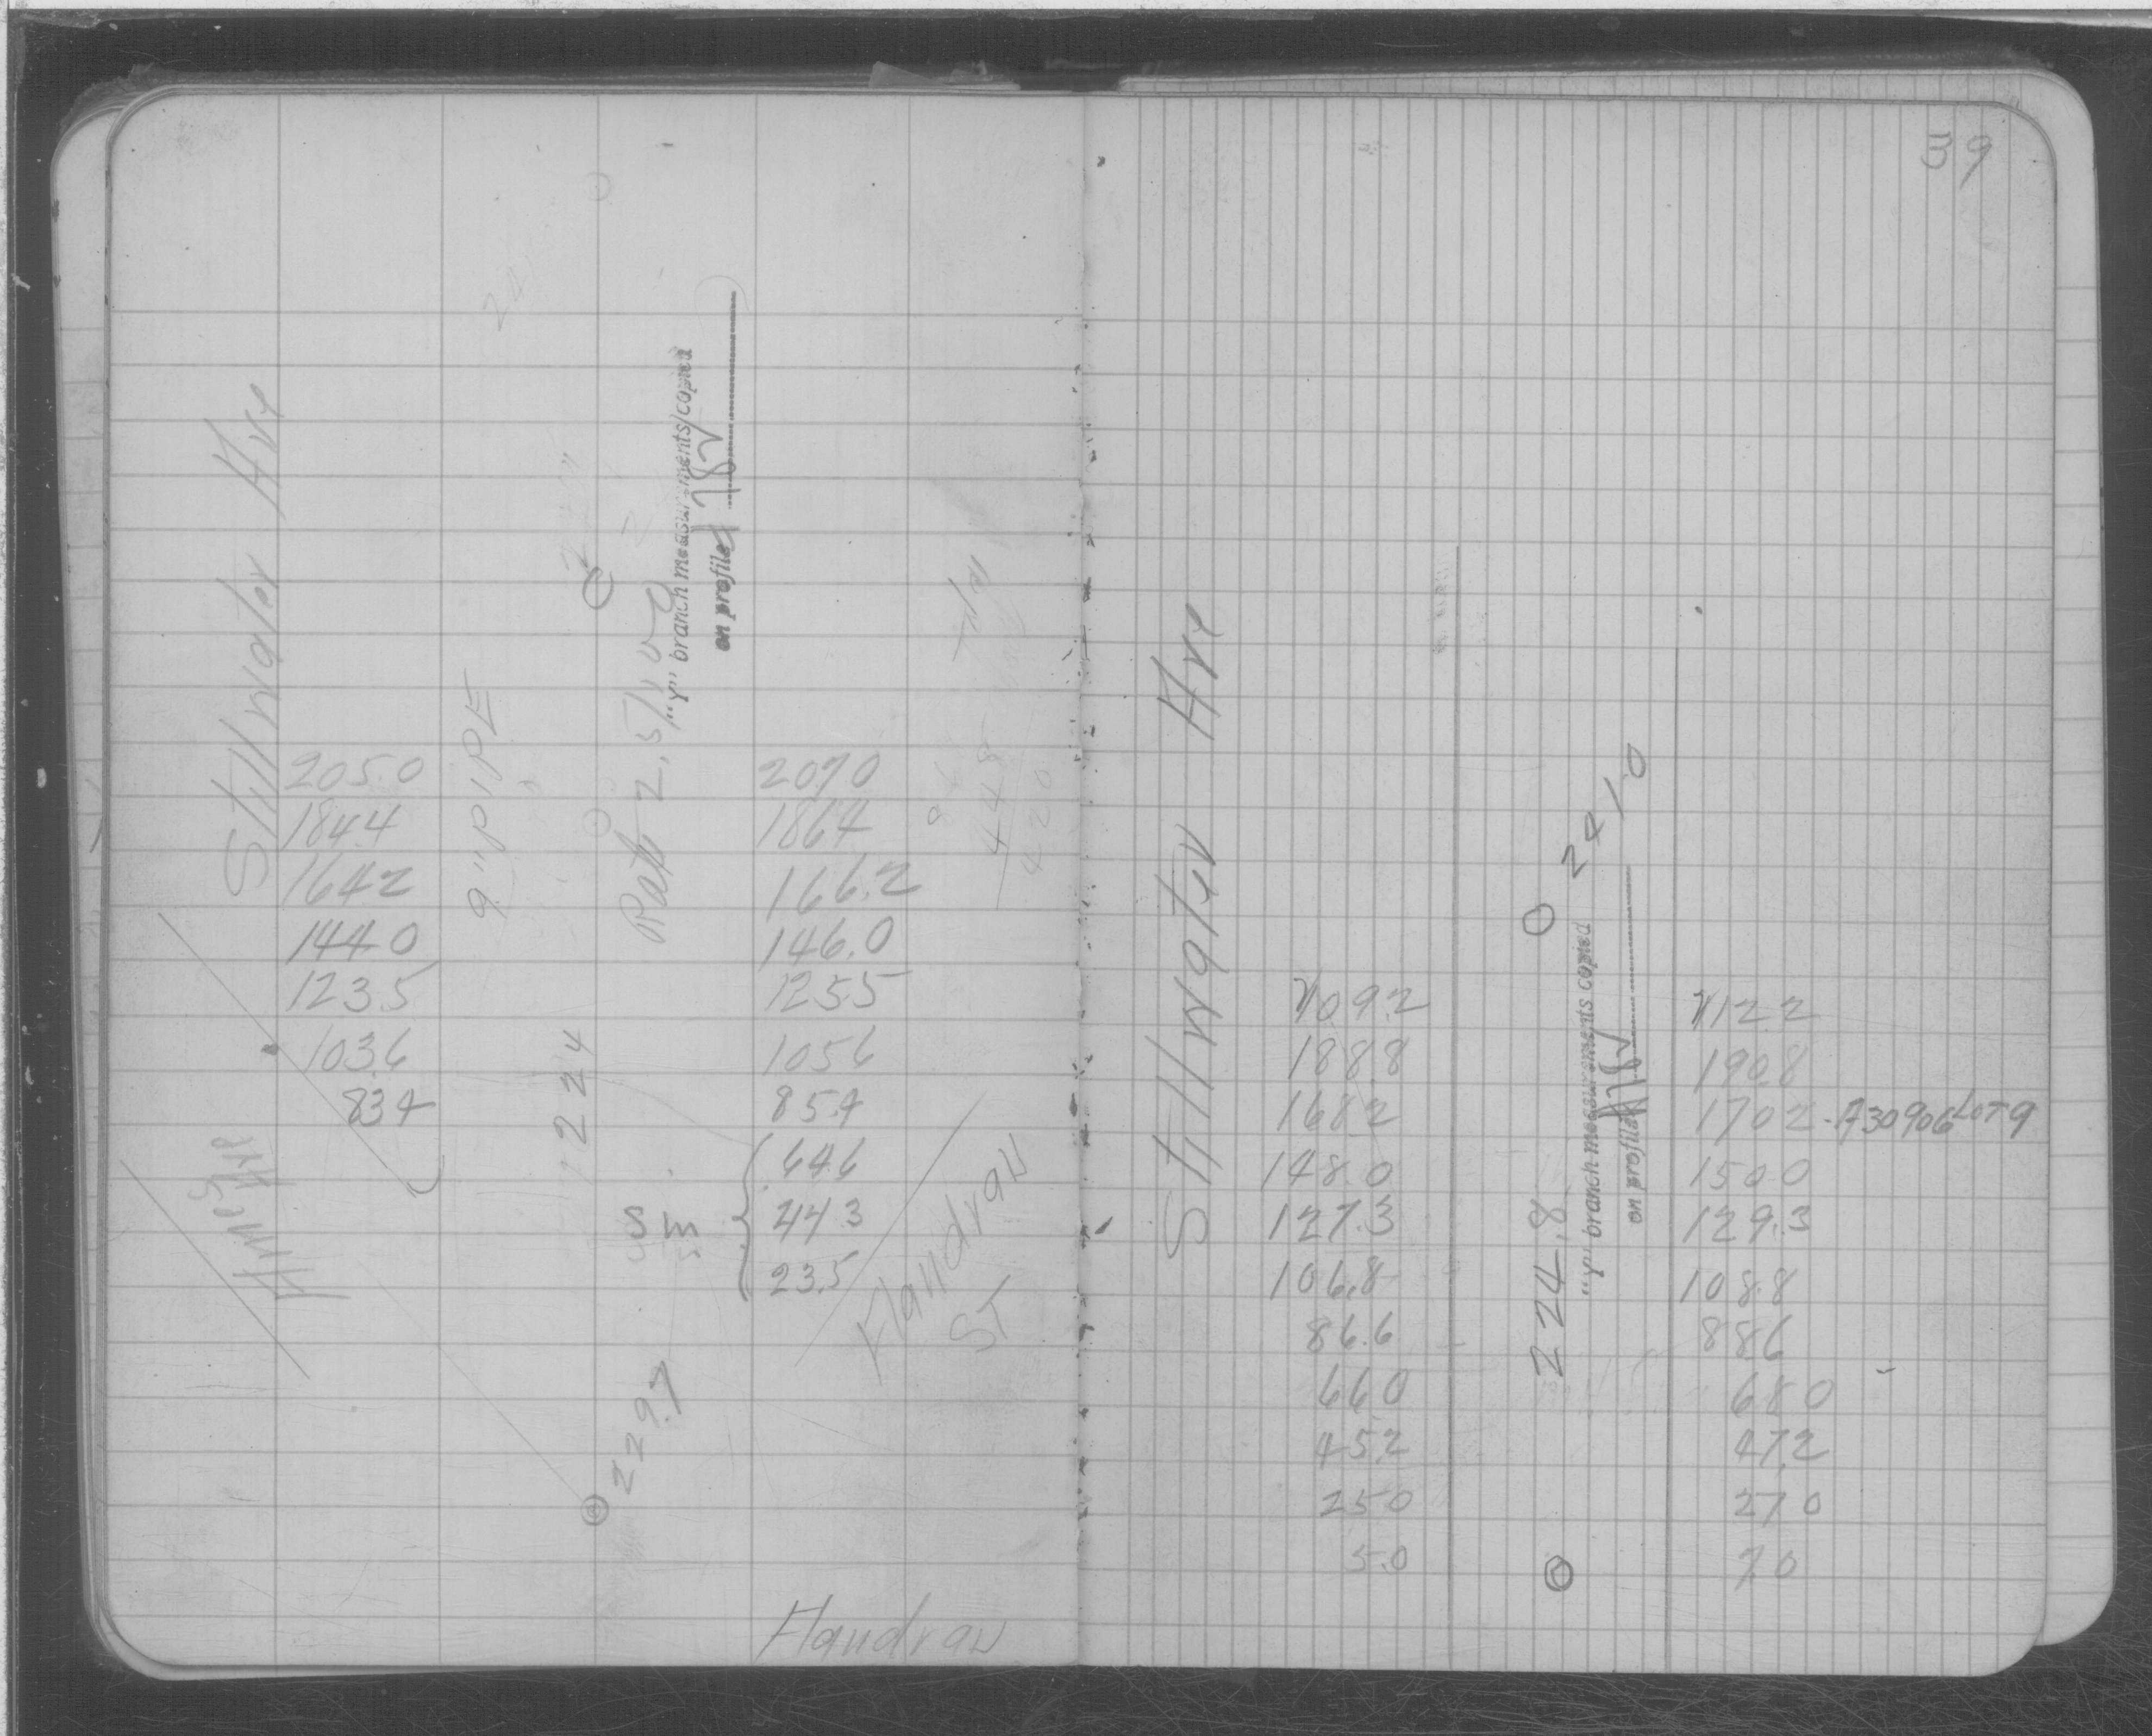 Stillwater Ave
2050
1844
1642
1440
1235
1036
834
9" PIPE
2224
"Y" branch measurements copied
on profile
2070
1864
166.2
146.0
1255
1056
85.4
646
443
23.5
S
229.7
Flandrau
ST
Flandrau
39
Stillwater Ave
2092
1888
1682
148.0
127.3
106.8
86.6
660
452
250
5.0
2410
224.8
"Y" branch measurements copied
on profile
2122
1908
1702 - A30906 LOT 9
1500
129.3
1088
886
680
472
270
70